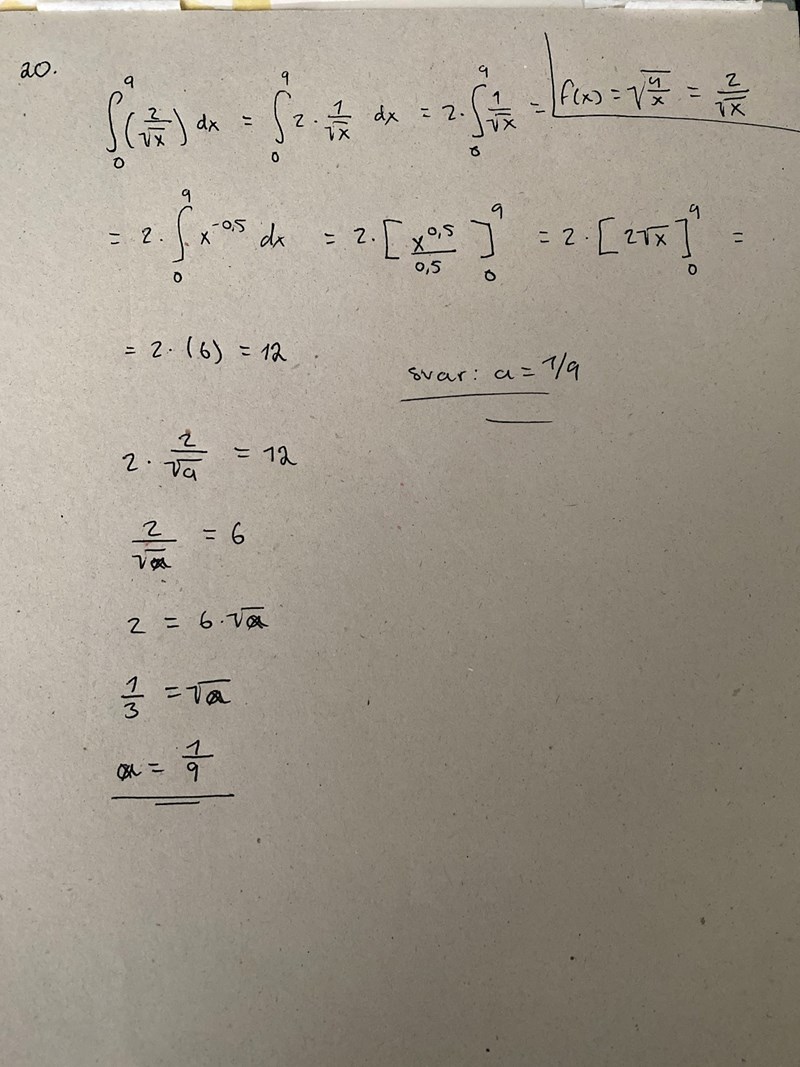 20.
∫₀⁹ (2/√x) dx = ∫₀⁹ 2 · 1/√x dx = 2 · ∫₀⁹ 1/√x =
f(x) = √(4/x) = 2/√x
= 2 · ∫₀⁹ x^-0,5 dx = 2 · [x^0,5/0,5]₀⁹ = 2 · [2√x]₀⁹ =
= 2 · (6) = 12
svar: a = 1/9
2 · 2/√a = 12
2/√a = 6
2 = 6 · √a
1/3 = √a
a = 1/9